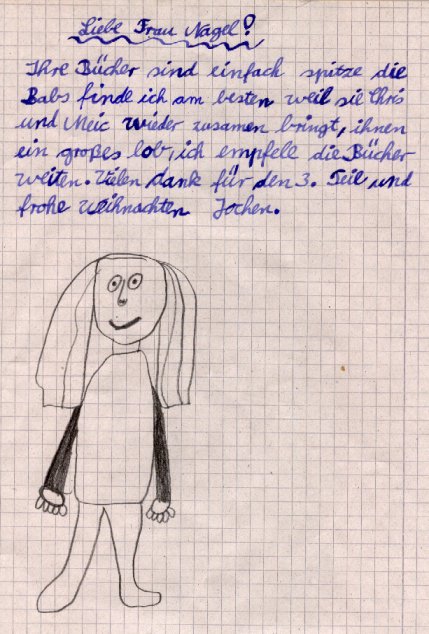 Liebe Frau Nagel!
Ihre Bücher sind einfach spitze die
Babs finde ich am besten weil sie Chris
und Meic wieder zusamen bringt, ihnen
ein großes lob, ich empfell die Bücher
weiten. Vielen dank für den 3. Teil und
frohe weihnachten Jochen.